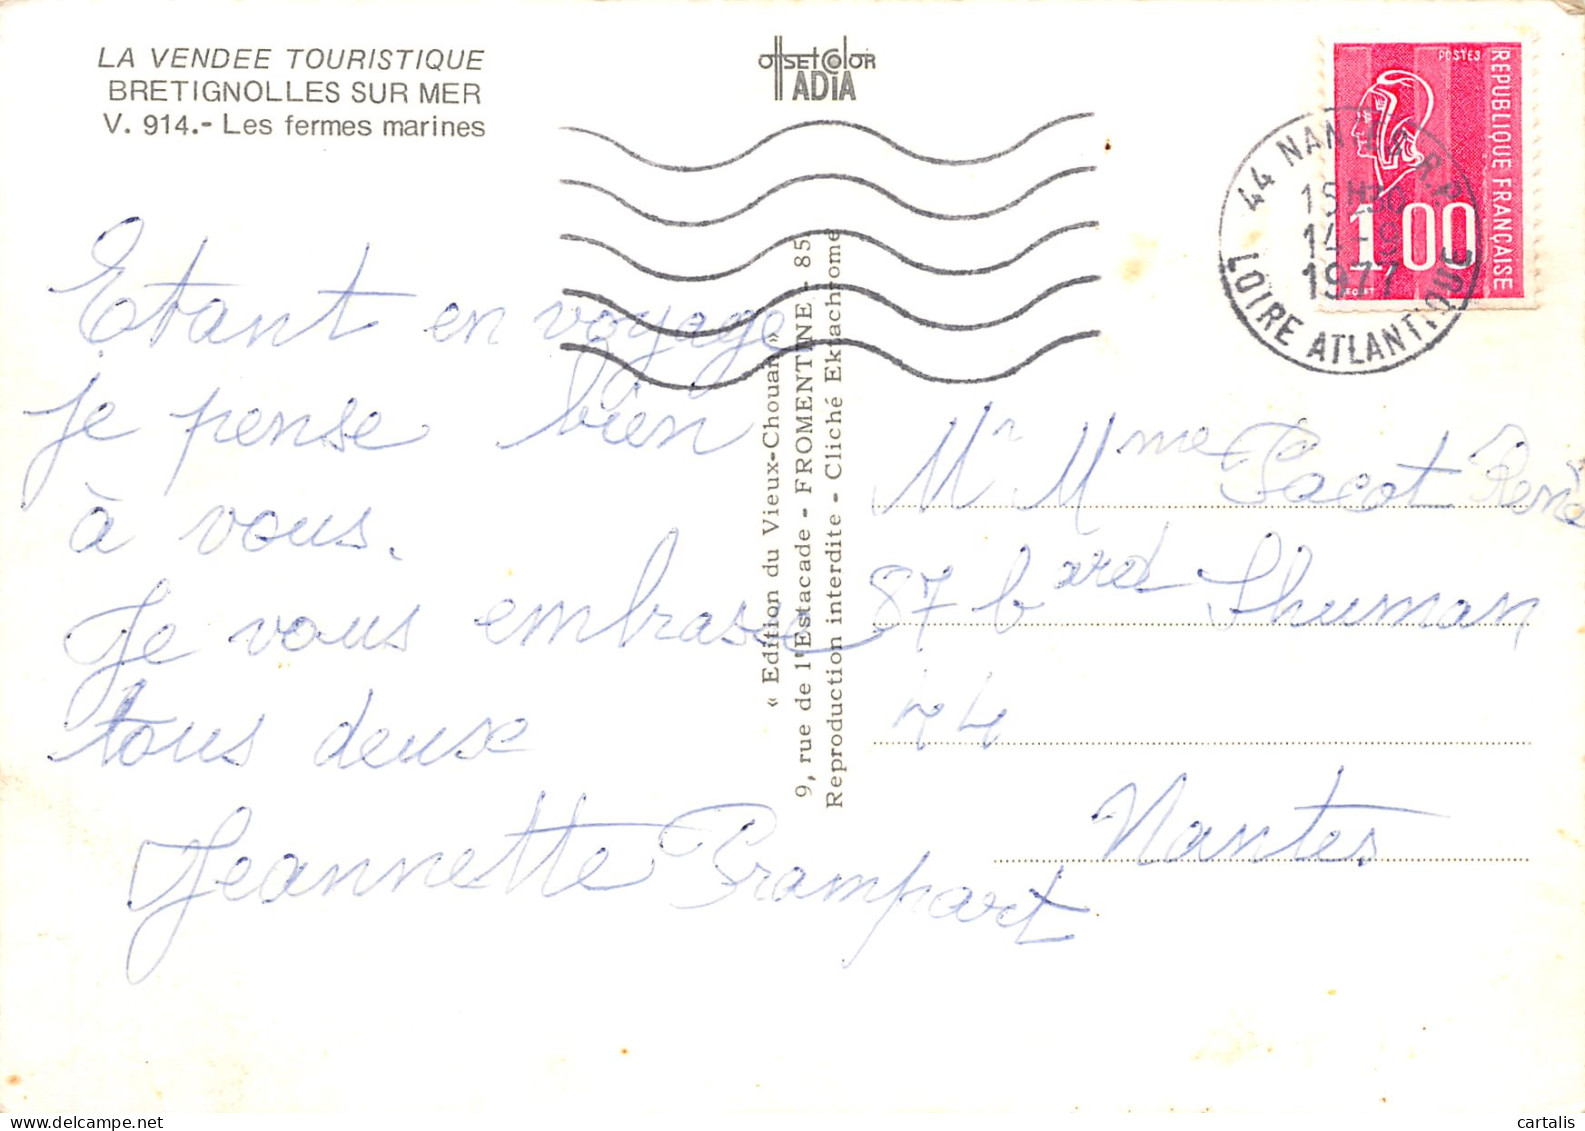 LA VENDEE TOURISTIQUE
BRETIGNOLLES SUR MER
V. 914.- Les fermes marines
OffSET COlOR
ADIA
POSTES
REPUBLIQUE FRANÇAISE
1.00
44 NANTES R.P.
15H30
14-9
1977
LOIRE ATLANTIQUE
Etant en voyage
je pense bien
à vous.
Je vous embrasse
tous deux
Jeannette Prampart
« Edition du Vieux-Chouan »
9, rue de l'Estacade - FROMENTINE - 85
Reproduction interdite - Cliché Ektachrome
Mr Mme Pacot René
87 bard Shuman
44
Nantes
cartalis